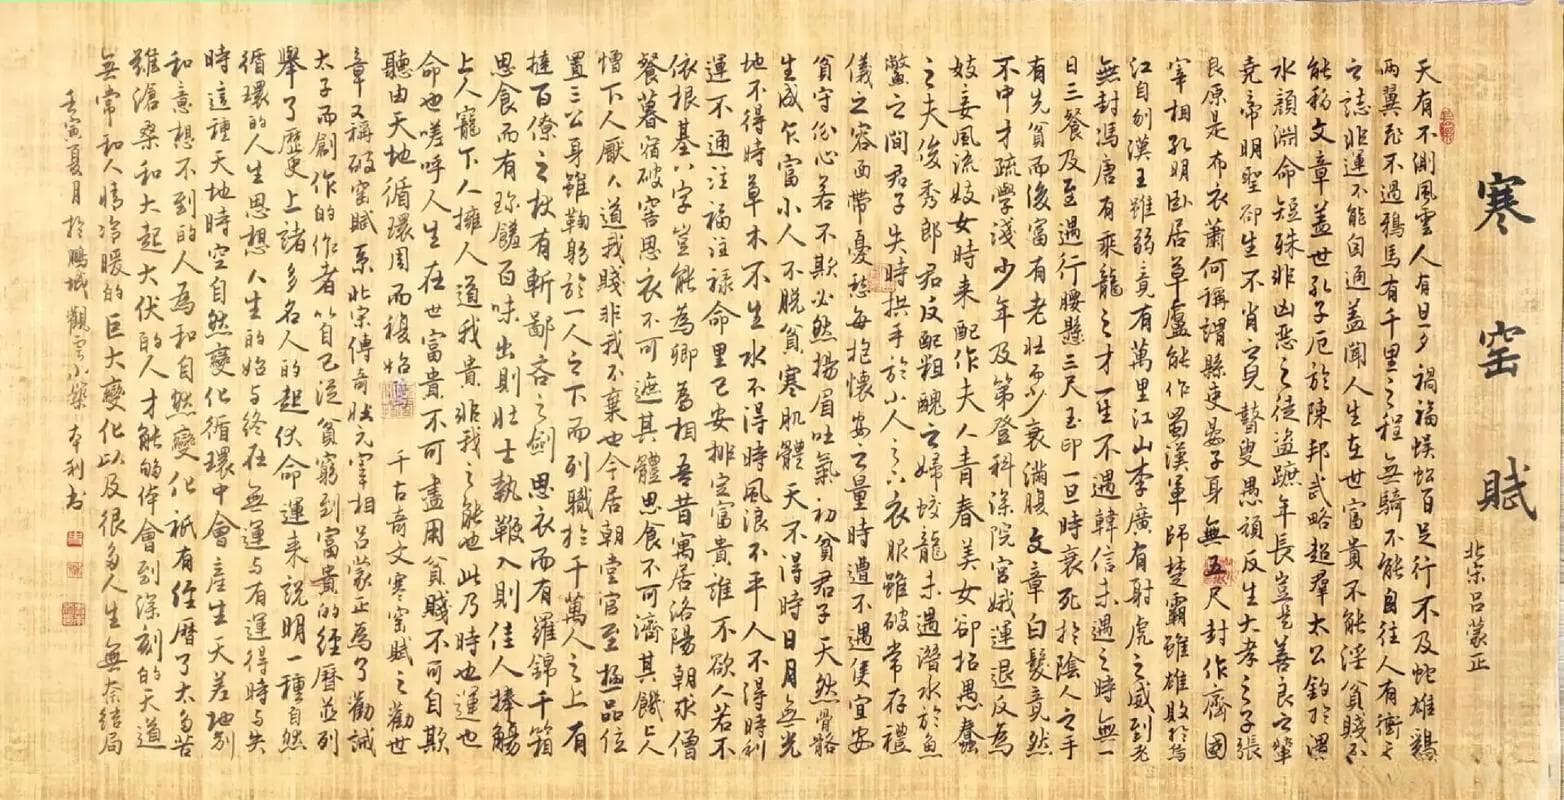 寒窑賦
北宋呂蒙正
天有不測風雲人有旦夕禍福蜈蚣百足行不及蛇雄鷄
兩翼飛不過鴉馬有千里之程無騎不能自往人有衝天
之誌非運不能自通盖聞人生在世富貴不能淫貧賤不
能移文章盖世孔子厄於陳邦武略超羣太公釣於渭
水顔淵命短殊非凶惡之徒盗蹠年長豈是善良之輩
尭帝明聖卻生不肖之兒瞽叟愚頑反生大孝之子張
良原是布衣蕭何稱謂縣吏晏子身無五尺封作齊國
宰相孔明卧居草廬能作蜀漢軍師楚霸雖雄敗於烏
江自刎漢王雖弱竟有萬里江山李廣有射虎之威到老
無封馮唐有乘龍之才一生不遇韓信未遇之時無一
日三餐及至遇行腰懸三尺玉印一旦時衰死於陰人之手
有先貧而後富有老壯而少衰滿腹文章白髮竟然
不中才疏學淺少年及第登科深院宮娥運退反為
妓妾風流妓女時来配作夫人青春美女卻招愚蠢
之夫俊秀郎君反配粗醜之婦蛟龍未遇潛水於魚
鱉之間君子失時拱手於小人之下衣服雖破常存禮
儀之容面帶憂愁每抱懷安之量時遭不遇只宜安
貧守份心若不欺必然揚眉吐氣初貧君子天然骨骼
生成乍富小人不脱貧寒肌體天不得時日月無光
地不得時草木不生水不得時風浪不平人不得時利
運不通注福注禄命里已安排定富貴誰不欲人若不
依根基八字豈能為卿為相吾昔寓居洛陽朝求僧
餐暮宿破窖思衣不可遮其體思食不可濟其饑上人
憎下人厭人道我賤非我不棄也今居朝堂官至極品位
置三公身雖鞠躬於一人之下而列職於千萬人之上有
撻百僚之杖有斬鄙吝之劍思衣而有羅錦千箱
思食而有珍饈百味出則壯士執鞭入則佳人捧觴
上人寵下人擁人道我貴非我之能也此乃時也運也
命也嗟呼人生在世富貴不可盡用貧賤不可自欺
聽由天地循環周而複始　千古奇文寒窑賦之勸世
章又稱破窑賦系北宋傳奇狀元宰相呂蒙正為了勸誡
太子而創作的作者以自己從貧窮到富貴的經曆並列
舉了歷史上諸多名人的起伏命運来說明一種自然
循環的人生思想人生的始与終在無運与有運得時与失
時這種天地時空自然變化循環中會産生天差地别
和意想不到的人為和自然變化衹有經曆了太多苦
難滄桑和大起大伏的人才能夠体會到深刻的天道
無常和人情冷暖的巨大變化以及很多人生無奈結局
壬寅夏月於鵬城觀雲小築本利書